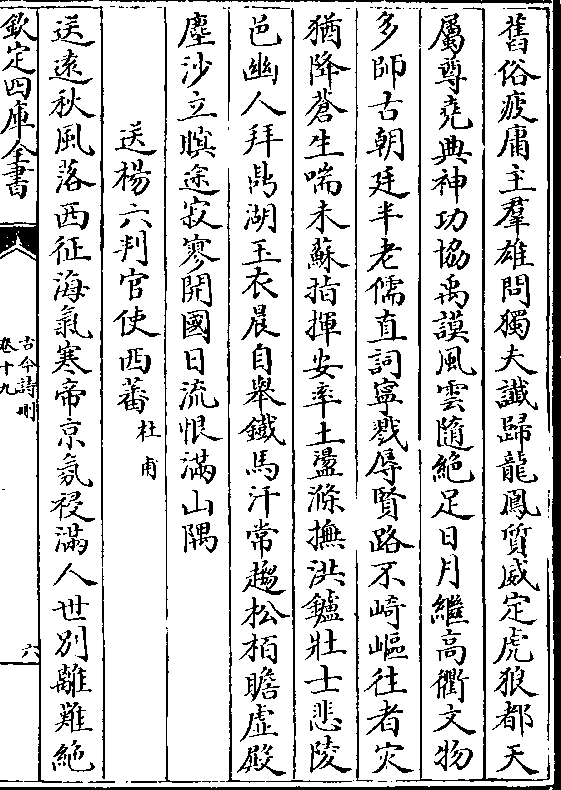 舊俗疲庸主羣雄問獨夫讖歸龍鳳質威定虎狼都天
屬尊堯典神功協禹謨風雲隨絕足日月繼高衢文物
多師古朝廷半老儒直詞寧戮辱賢路不崎嶇往者災
猶降蒼生喘未蘇指揮安率土盪滌撫洪鑪壯士悲陵
邑幽人拜鼎湖玉衣晨自舉鐵馬汗常趨松柏瞻虛殿
塵沙立暝途寂寥開國日流恨滿山隅
送楊六判官使西蕃 杜甫
送遠秋風落西征海氣寒帝京氛祲滿人世別離難絕
欽定四庫全書
古今詩刪
卷十九
六